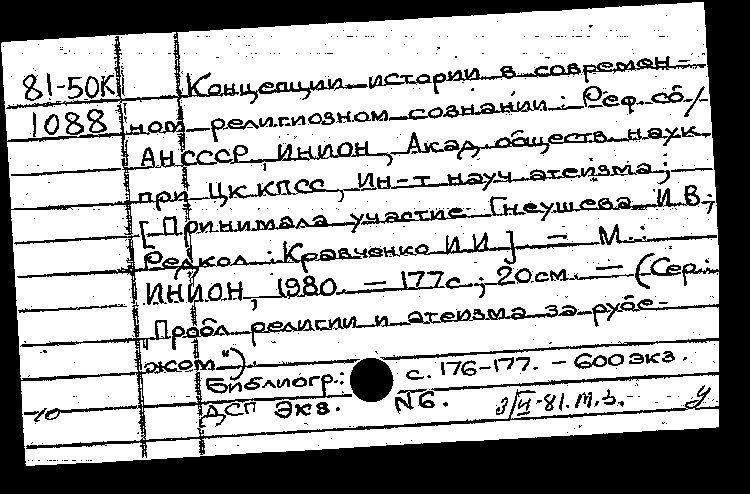 81-50К Концепции истории в современ-
1088 ном религиозном сознании: Реф. сб/
АН СССР, ИНИОН, Акад. обществ. наук
при ЦК КПСС, Ин-т науч. атеизма;
[Принимала участие Гнеушева И.В.;
Редкол.: Кравченко И.И.] - М.:
ИНИОН, 1980. - 177с.; 20см. - (Сер.:
"Пробл. религии и атеизма за рубе-
жом").
Библиогр.: с. 176-177. - 600экз.
10 ДСП Экз. №6. 3/VI-81.М.З. У